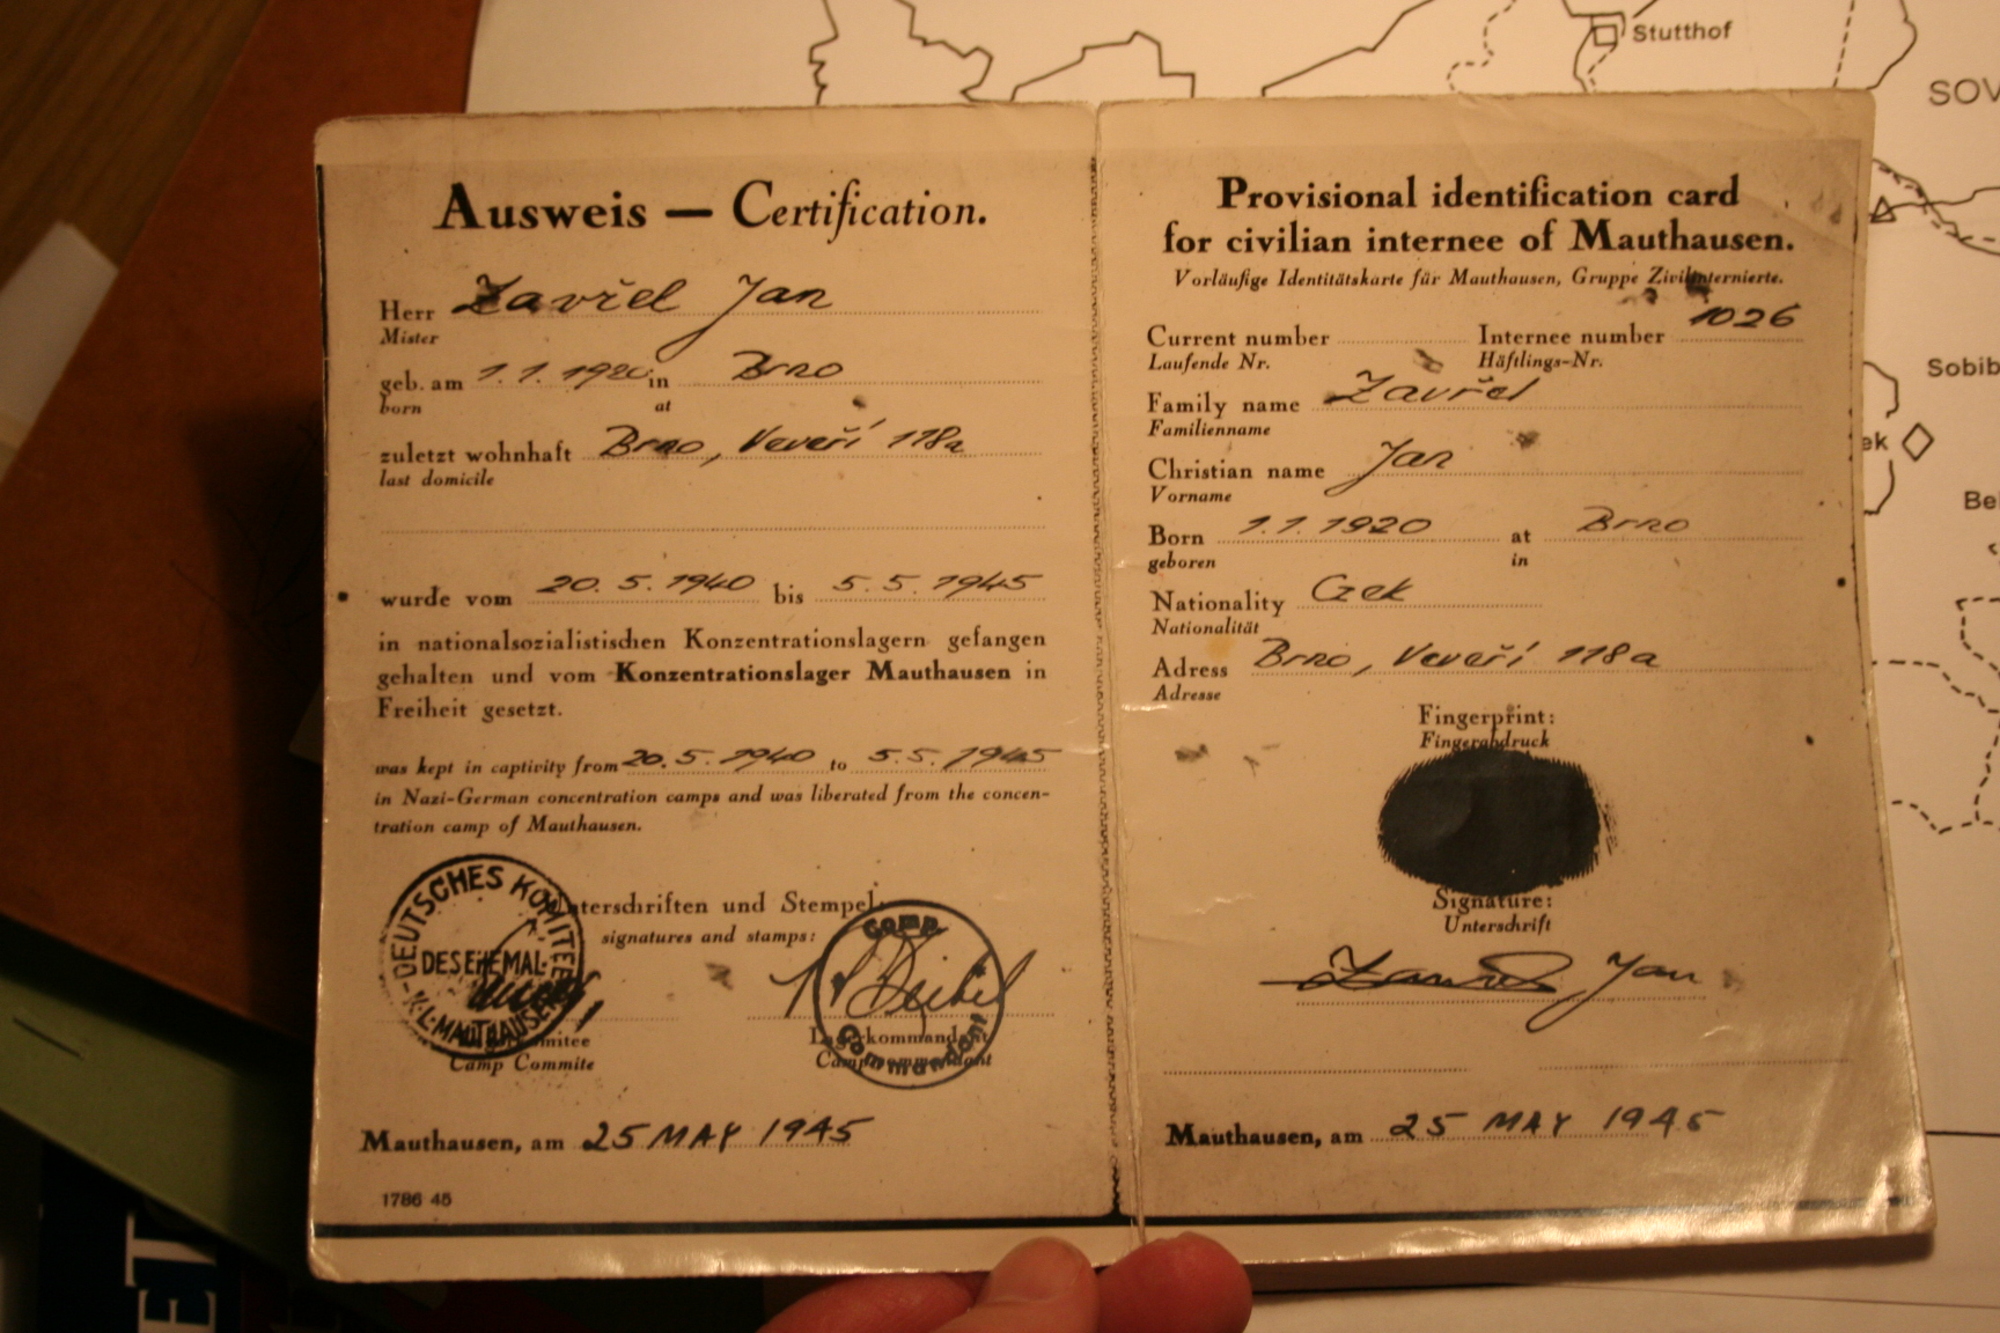 Stutthof
SOV
Sobib
ek
Bel
Ausweis — Certification.
Herr Zavřel Jan
Mister
geb. am 1.1.1920 in Brno
born at
zuletzt wohnhaft Brno, Veveří 118a
last domicile
wurde vom 20.5.1940 bis 5.5.1945
in nationalsozialistischen Konzentrationslagern gefangen
gehalten und vom Konzentrationslager Mauthausen in
Freiheit gesetzt.
was kept in captivity from 20.5.1940 to 5.5.1945
in Nazi-German concentration camps and was liberated from the concen-
tration camp of Mauthausen.
Unterschriften und Stempel:
signatures and stamps:
DEUTSCHES KOMITEE
DES EHEMAL.
K-L-MAUTHAUSEN
Comp.
Commandant
Lagerkommandant
Camp Commite
Campkommandant
Mauthausen, am 25 MAY 1945
1786 45
Provisional identification card
for civilian internee of Mauthausen.
Vorläufige Identitätskarte für Mauthausen, Gruppe Zivilinternierte.
Current number Internee number 1026
Laufende Nr. Häftlings-Nr.
Family name Zavřel
Familienname
Christian name Jan
Vorname
Born 1.1.1920 at Brno
geboren in
Nationality Czek
Nationalität
Adress Brno, Veveří 118a
Adresse
Fingerprint:
Fingerabdruck
Signature:
Unterschrift
Zavřel Jan
Mauthausen, am 25 MAY 1945
ET